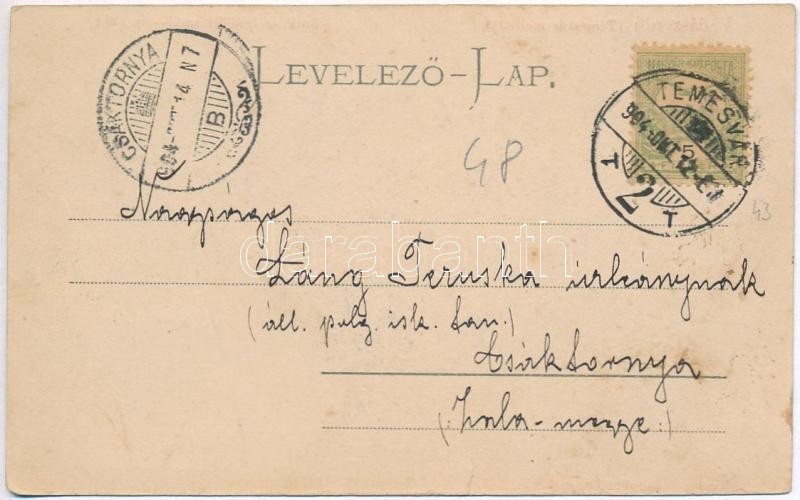 CSÁKTORNYA
904 OKT 14 N7
B
LEVELEZŐ-LAP.
MAGYAR KIR. POSTA
5
TEMESVÁR
904-OKT. 12-E
1 2 T
T
48
43
Nagyságos
darabanth
Láng Teruska úrleánynak
(áll. polg. isk. tan.)
Csáktornya
(: Zala-megye :)